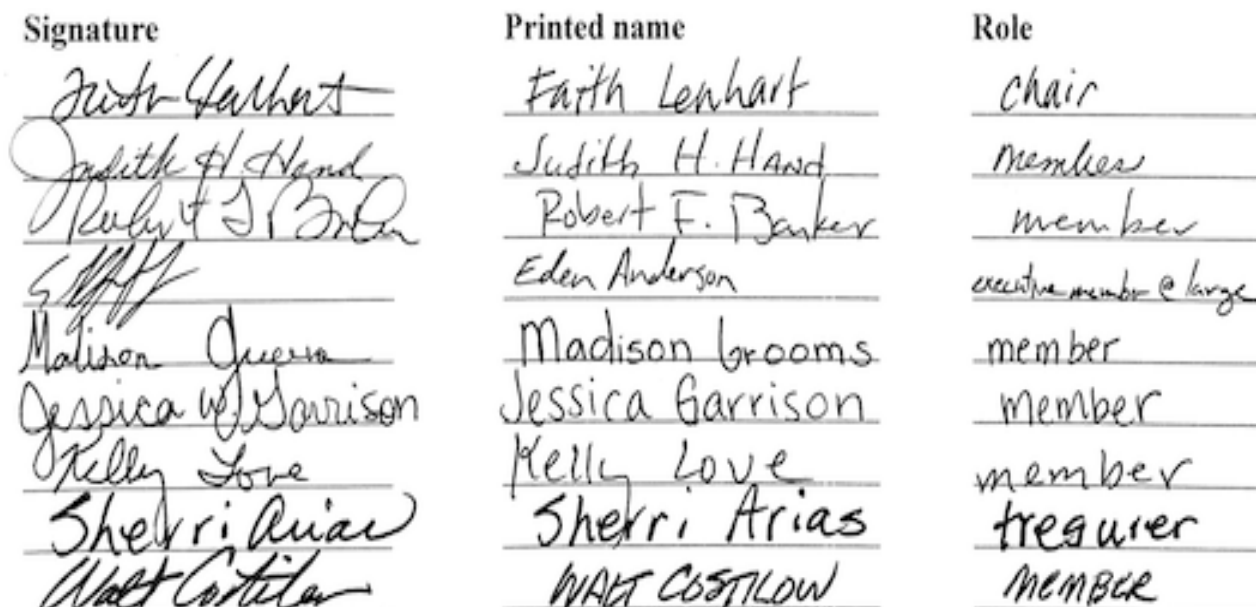 Signature Printed name Role
Faith Lenhart Faith Lenhart chair
Judith H. Hand Judith H. HAND member
Robert F Robert F. Banker member
Eden Anderson executive member @ large
Madison Madison Grooms member
Jessica W. Garrison Jessica Garrison member
Kelly Love Kelly Love member
Sherri Arias Sherri Arias tregurer
Walt Costilow WALT COSTILOW MEMBER